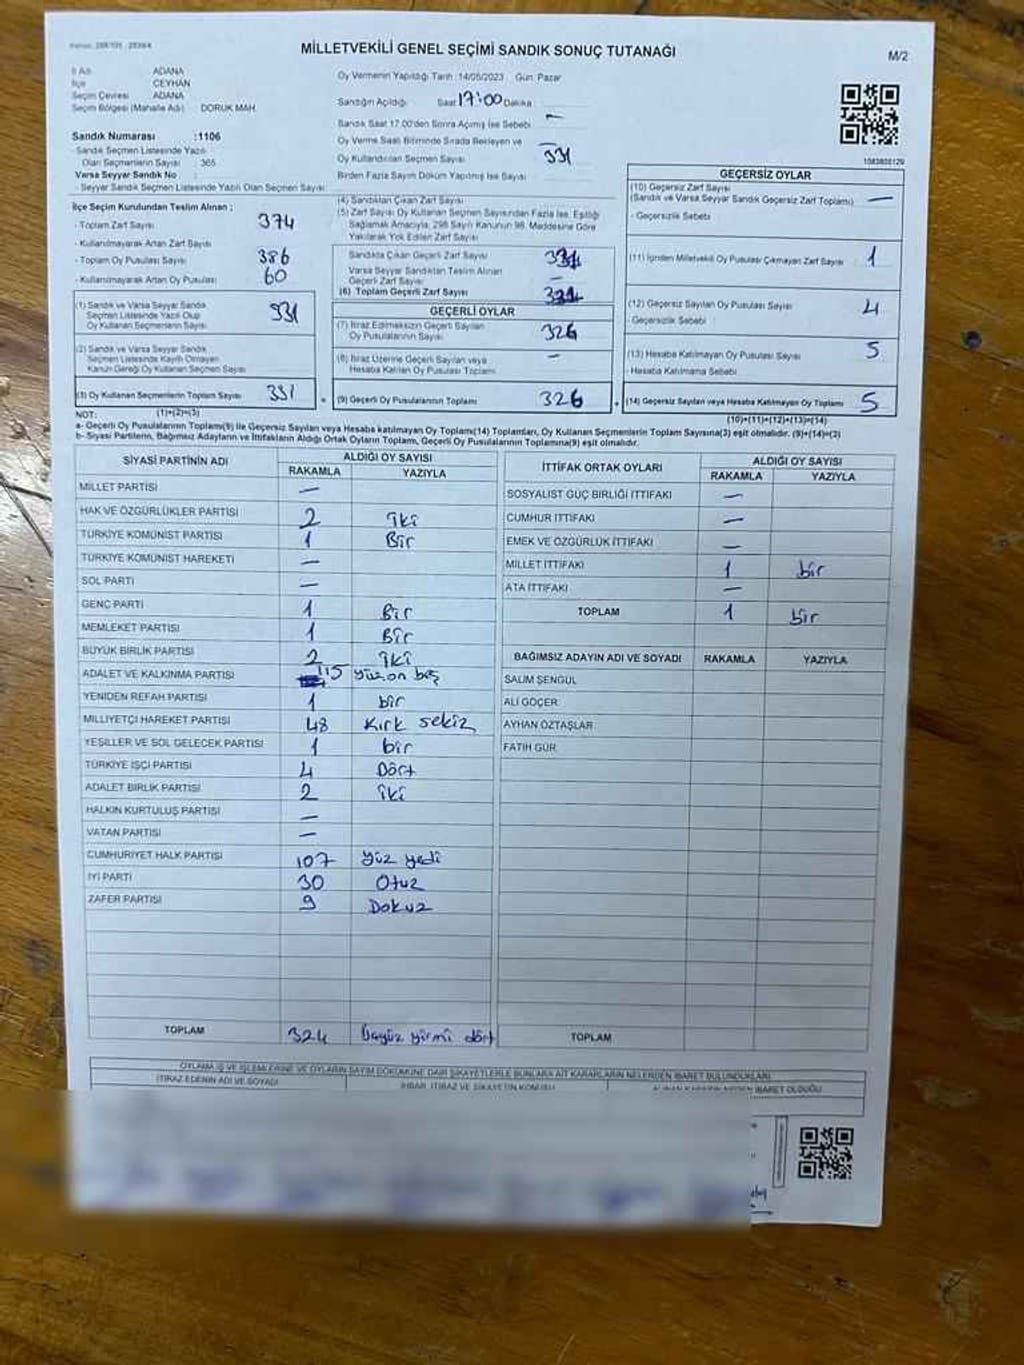 MİLLETVEKİLİ GENEL SEÇİMİ SANDIK SONUÇ TUTANAĞI
M/2
İl Adı ADANA
İlçe CEYHAN
Seçim Çevresi ADANA
Seçim Bölgesi (Mahalle Adı) DORUK MAH.
Sandık Numarası :1106
- Sandık Seçmen Listesinde Yazılı
Olan Seçmenlerin Sayısı : 365
Varsa Seyyar Sandık No :
- Seyyar Sandık Seçmen Listesinde Yazılı Olan Seçmen Sayısı
Oy Vermenin Yapıldığı Tarih :14/05/2023 Gün: Pazar
Sandığın Açıldığı Saat 17:00 Dakika
Sandık Saat 17.00'den Sonra Açılmış İse Sebebi —
Oy Verme Saati Bitiminde Sırada Bekleyen ve —
Oy Kullandırılan Seçmen Sayısı 331
Birden Fazla Sayım Döküm Yapılmış İse Sayısı
1083808129
İlçe Seçim Kurulundan Teslim Alınan ;
- Toplam Zarf Sayısı 374
- Kullanılmayarak Artan Zarf Sayısı
- Toplam Oy Pusulası Sayısı 386
- Kullanılmayarak Artan Oy Pusulası 60
(1) Sandık ve Varsa Seyyar Sandık
Seçmen Listesinde Yazılı Olup
Oy Kullanan Seçmenlerin Sayısı 331
(2) Sandık ve Varsa Seyyar Sandık
Seçmen Listesinde Kayıtlı Olmayan
Kanun Gereği Oy Kullanan Seçmen Sayısı
(3) Oy Kullanan Seçmenlerin Toplam Sayısı 331
(1)+(2)=(3)
(4) Sandıktan Çıkan Zarf Sayısı
(5) Zarf Sayısı Oy Kullanan Seçmen Sayısından Fazla İse, Eşitliği
Sağlamak Amacıyla, 298 Sayılı Kanunun 98. Maddesine Göre
Yakılarak Yok Edilen Zarf Sayısı
Sandıkta Çıkan Geçerli Zarf Sayısı
Varsa Seyyar Sandıktan Teslim Alınan
Geçerli Zarf Sayısı —
(6) Toplam Geçerli Zarf Sayısı
GEÇERLİ OYLAR
(7) İtiraz Edilmeksizin Geçerli Sayılan
Oy Pusulalarının Sayısı 326
(8) İtiraz Üzerine Geçerli Sayılan veya
Hesaba Katılan Oy Pusulası Toplamı —
(9) Geçerli Oy Pusulalarının Toplamı 326
GEÇERSİZ OYLAR
(10) Geçersiz Zarf Sayısı
(Sandık ve Varsa Seyyar Sandık Geçersiz Zarf Toplamı) —
- Geçersizlik Sebebi
(11) İçinden Milletvekili Oy Pusulası Çıkmayan Zarf Sayısı 1
(12) Geçersiz Sayılan Oy Pusulası Sayısı 4
- Geçersizlik Sebebi :
(13) Hesaba Katılmayan Oy Pusulası Sayısı 5
- Hesaba Katılmama Sebebi
(14) Geçersiz Sayılan veya Hesaba Katılmayan Oy Toplamı 5
(10)+(11)+(12)+(13)=(14)
NOT:
a- Geçerli Oy Pusulalarının Toplamı(9) ile Geçersiz Sayılan veya Hesaba katılmayan Oy Toplamı(14) Toplamları, Oy Kullanan Seçmenlerin Toplam Sayısına(3) eşit olmalıdır. (9)+(14)=(3)
b- Siyasi Partilerin, Bağımsız Adayların ve İttifakların Aldığı Ortak Oyların Toplamı, Geçerli Oy Pusulalarının Toplamına(9) eşit olmalıdır.
SİYASİ PARTİNİN ADI ALDIĞI OY SAYISI
RAKAMLA YAZIYLA
MİLLET PARTİSİ —
HAK VE ÖZGÜRLÜKLER PARTİSİ 2 iki
TÜRKİYE KOMÜNİST PARTİSİ 1 Bir
TÜRKİYE KOMÜNİST HAREKETİ —
SOL PARTİ —
GENÇ PARTİ 1 Bir
MEMLEKET PARTİSİ 1 Bir
BÜYÜK BİRLİK PARTİSİ 2 iki
ADALET VE KALKINMA PARTİSİ 115 yüz on beş
YENİDEN REFAH PARTİSİ 1 bir
MİLLİYETÇİ HAREKET PARTİSİ 48 Kırk sekiz
YEŞİLLER VE SOL GELECEK PARTİSİ 1 bir
TÜRKİYE İŞÇİ PARTİSİ 4 Dört
ADALET BİRLİK PARTİSİ 2 iki
HALKIN KURTULUŞ PARTİSİ —
VATAN PARTİSİ —
CUMHURİYET HALK PARTİSİ 107 yüz yedi
İYİ PARTİ 30 Otuz
ZAFER PARTİSİ 9 Dokuz
TOPLAM 324 Üçyüz yirmi dört
İTTİFAK ORTAK OYLARI ALDIĞI OY SAYISI
RAKAMLA YAZIYLA
SOSYALİST GÜÇ BİRLİĞİ İTTİFAKI —
CUMHUR İTTİFAKI —
EMEK VE ÖZGÜRLÜK İTTİFAKI —
MİLLET İTTİFAKI 1 bir
ATA İTTİFAKI —
TOPLAM 1 bir
BAĞIMSIZ ADAYIN ADI VE SOYADI RAKAMLA YAZIYLA
SALİM ŞENGÜL
ALİ GÖÇER
AYHAN ÖZTAŞLAR
FATİH GÜR
TOPLAM
OYLAMA İŞ VE İŞLEMLERİNE VE OYLARIN SAYIM DÖKÜMÜNE DAİR ŞİKAYETLERLE BUNLARA AİT KARARLARIN NELERDEN İBARET BULUNDUKLARI
İTİRAZ EDENİN ADI VE SOYADI İHBAR, İTİRAZ VE ŞİKAYETİN KONUSU